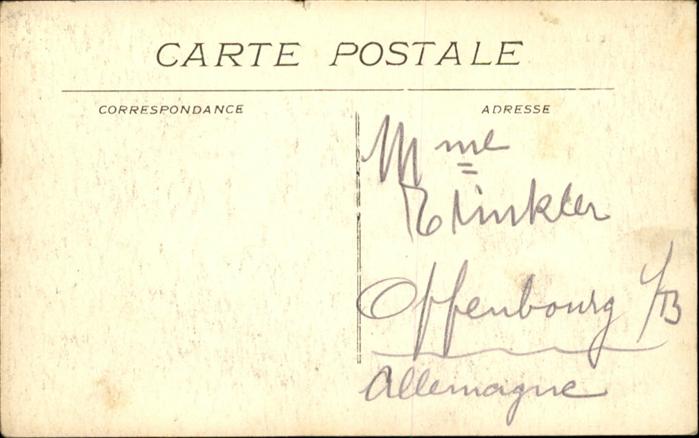 CARTE POSTALE
CORRESPONDANCE
ADRESSE
Mme
Offenbourg
Allemagne